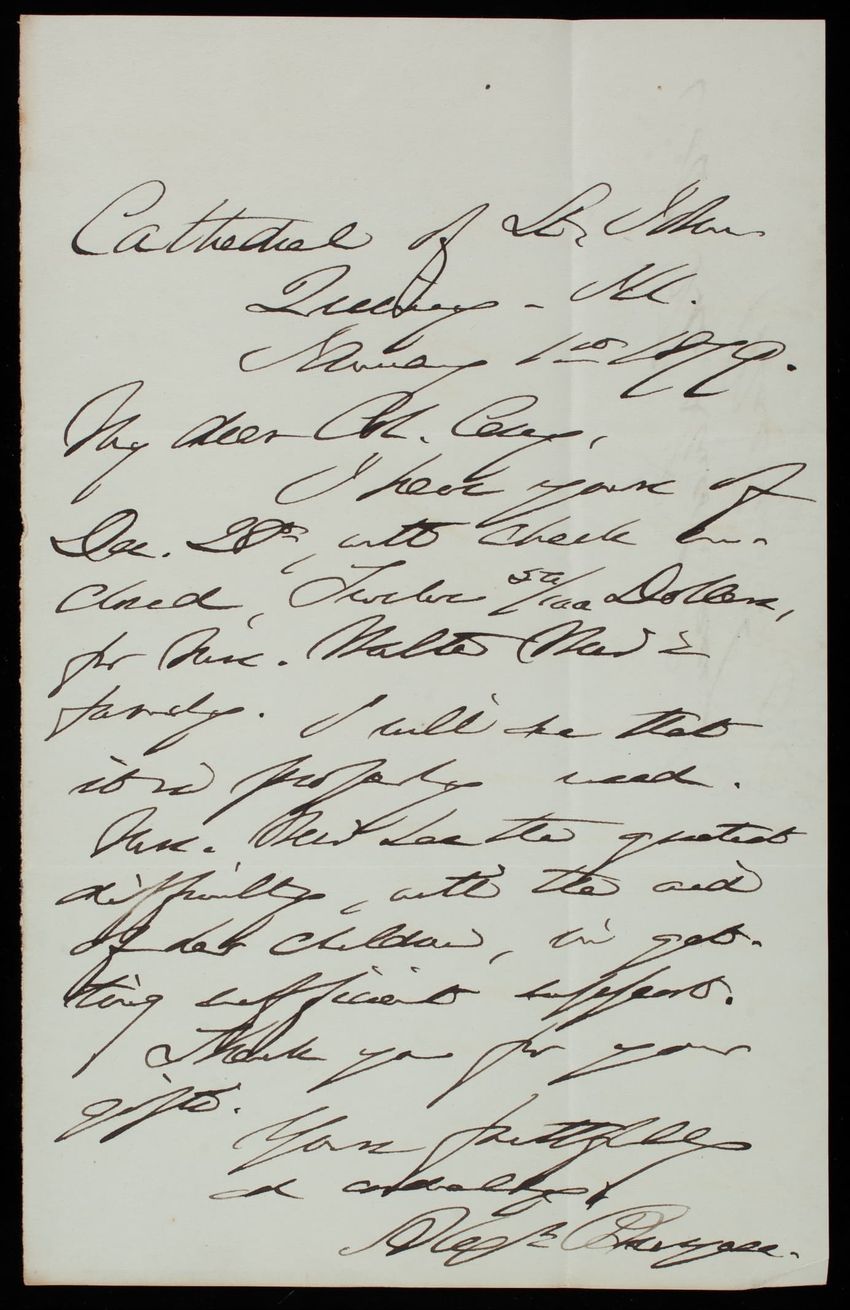 Cathedral of St. John
Quincy - Ill.
January 1st 1879.
My dear Col. Casey,
I have yours of
Dec. 28th, with check en-
closed, Twelve 50/100 Dollars,
for Mrs. Walter &
family. I will see that
it is properly used.
Mrs. has the greatest
difficulty, with the aid
of her children, in get-
ting sufficient support.
Thank you for your
gift.
Yours faithfully
and cordially,
Alex Burgess.